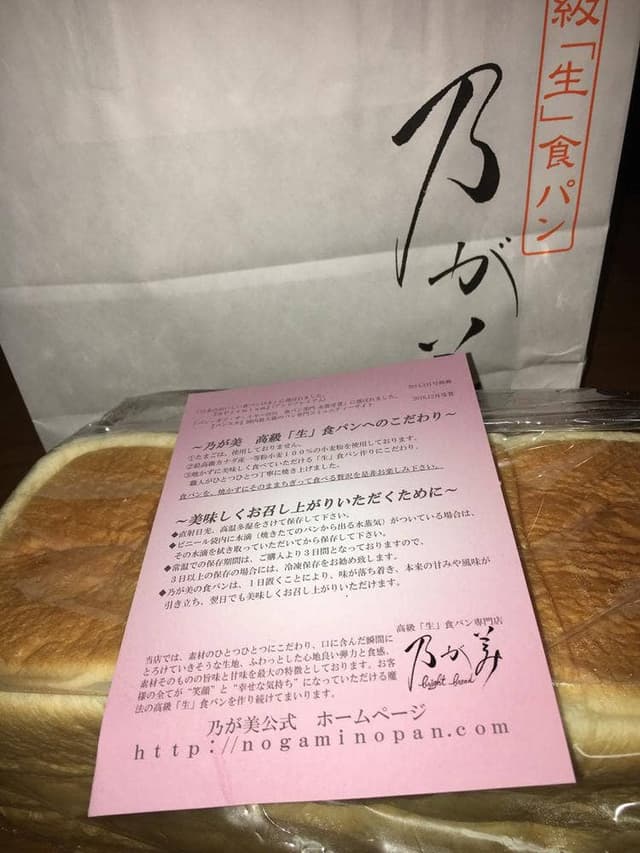 級「生」食パン
乃が美
～乃が美　高級「生」食パンへのこだわり～
①たまごは、使用しておりません。
②最高級カナダ産一等粉小麦100％の小麦粉を使用しております。
③焼かずに美味しく食べていただける「生」食パン作りにこだわり、
職人がひとつひとつ丁寧に焼き上げました。
食パンを、焼かずにそのままちぎって食べる贅沢を是非お楽しみ下さい。
～美味しくお召し上がりいただくために～
◆直射日光、高温多湿をさけて保存して下さい。
◆ビニール袋内に水滴（焼きたてのパンから出る水蒸気）がついている場合は、
その水滴を拭き取っていただいてから保存して下さい。
◆常温での保存期間は、ご購入より3日間となっておりますので、
3日以上の保存の場合には、冷凍保存をお勧め致します。
◆乃が美の食パンは、1日置くことにより、味が落ち着き、本来の甘みや風味が
引き立ち、翌日でも美味しくお召し上がりいただけます。
高級「生」食パン専門店
乃が美
bright bread
当店では、素材のひとつひとつにこだわり、口に含んだ瞬間に
とろけていきそうな生地、ふわっとした心地良い弾力と食感、
素材そのものの旨味と甘味を最大の特徴としております。お客
様の全てが“笑顔”と“幸せな気持ち”になっていただける魔
法の高級「生」食パンを作り続けてまいります。
乃が美公式　ホームページ
http://nogaminopan.com